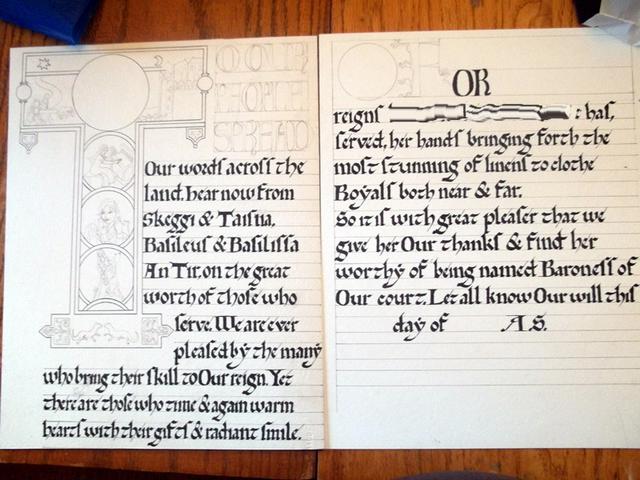 TO OUR
PEOPLE
SPREAD
Our words across the
land. hear now from
Skeggi & Taisiia,
Basileus & Basilissa
An Tir, on the great
worth of those who
serve. We are ever
pleased by the many
who bring their skill to Our reign. Yet
there are those who time & again warm
hearts with their gifts & radiant smile.
FOR
reigns has,
served, her hands bringing forth the
most stunning of linens to clothe
Royals both near & far.
So it is with great pleaser that we
give her Our thanks & find her
worthy of being named Baroness of
Our court. Let all know Our will this
day of A.S.